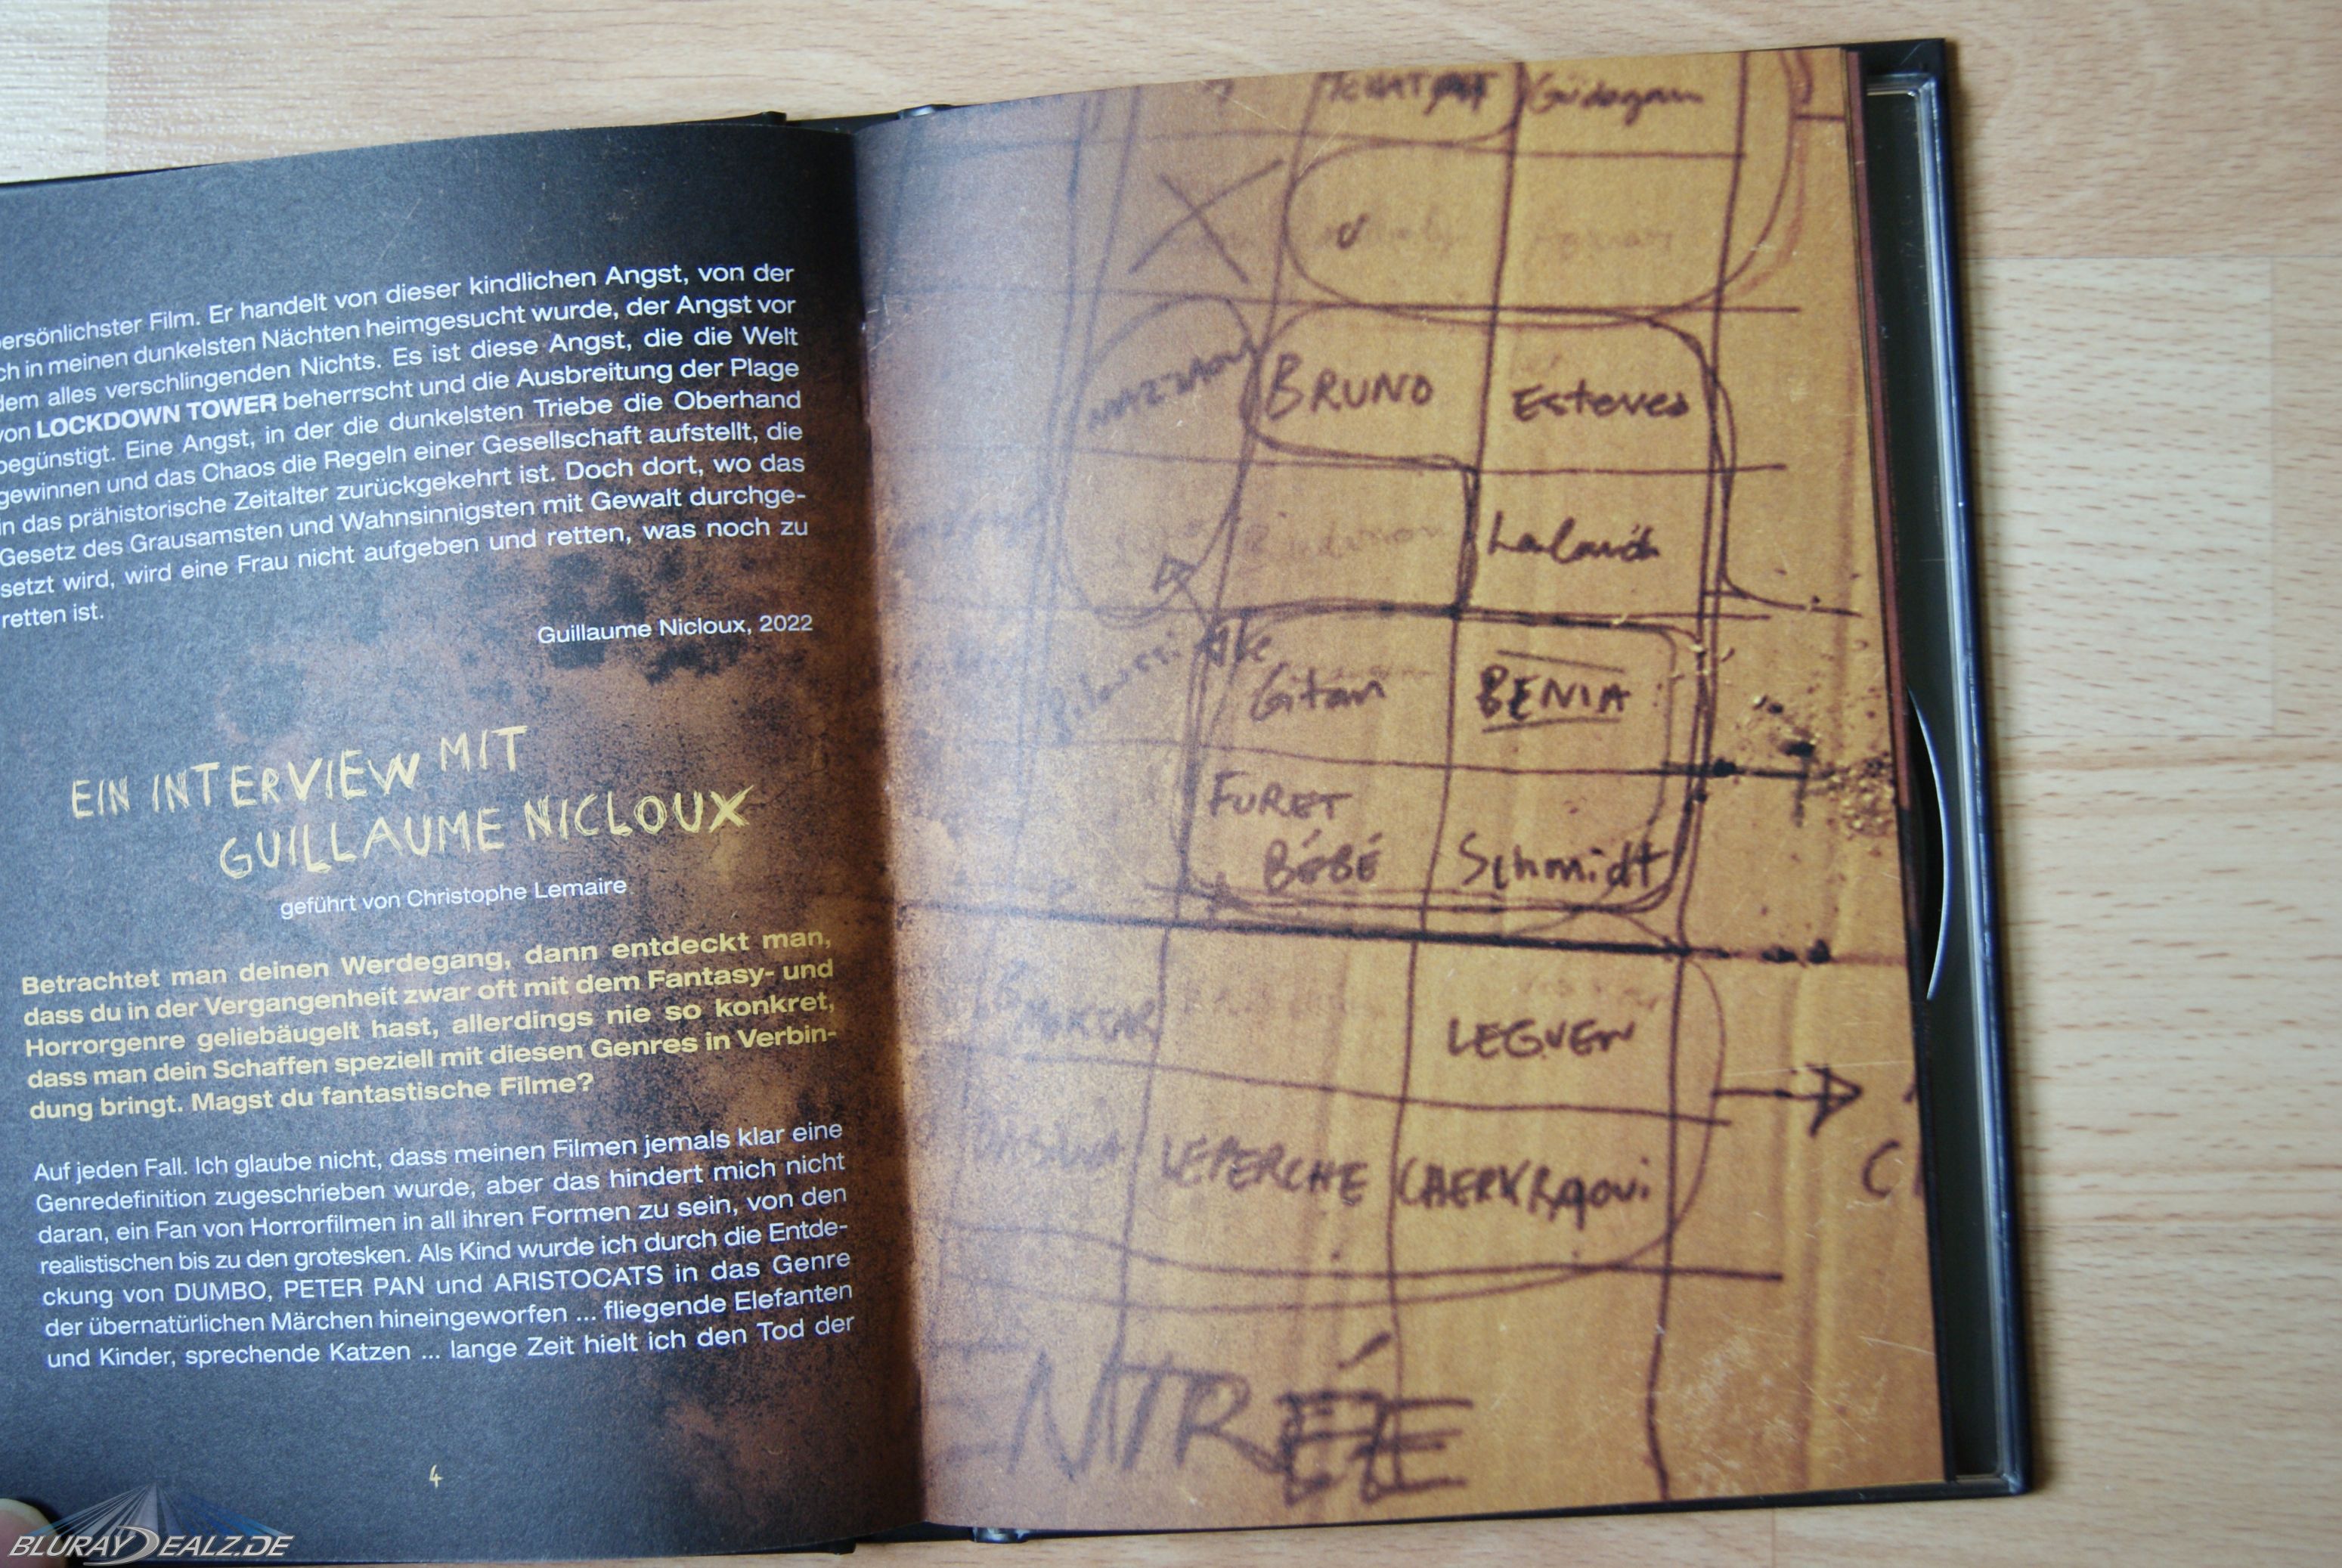 persönlichster Film. Er handelt von dieser kindlichen Angst, von der
ich in meinen dunkelsten Nächten heimgesucht wurde, der Angst vor
dem alles verschlingenden Nichts. Es ist diese Angst, die die Welt
von LOCKDOWN TOWER beherrscht und die Ausbreitung der Plage
begünstigt. Eine Angst, in der die dunkelsten Triebe die Oberhand
gewinnen und das Chaos die Regeln einer Gesellschaft aufstellt, die
in das prähistorische Zeitalter zurückgekehrt ist. Doch dort, wo das
Gesetz des Grausamsten und Wahnsinnigsten mit Gewalt durchge-
setzt wird, wird eine Frau nicht aufgeben und retten, was noch zu
retten ist.
Guillaume Nicloux, 2022
EIN INTERVIEW MIT
GUILLAUME NICLOUX
geführt von Christophe Lemaire
Betrachtet man deinen Werdegang, dann entdeckt man,
dass du in der Vergangenheit zwar oft mit dem Fantasy- und
Horrorgenre geliebäugelt hast, allerdings nie so konkret,
dass man dein Schaffen speziell mit diesen Genres in Verbin-
dung bringt. Magst du fantastische Filme?
Auf jeden Fall. Ich glaube nicht, dass meinen Filmen jemals klar eine
Genredefinition zugeschrieben wurde, aber das hindert mich nicht
daran, ein Fan von Horrorfilmen in all ihren Formen zu sein, von den
realistischen bis zu den grotesken. Als Kind wurde ich durch die Entde-
ckung von DUMBO, PETER PAN und ARISTOCATS in das Genre
der übernatürlichen Märchen hineingeworfen ... fliegende Elefanten
und Kinder, sprechende Katzen ... lange Zeit hielt ich den Tod der
4
BRUNO Esteves
Gitan BENIA
FURET
BÉBÉ Schmidt
LEGUEN
LEPERCHE CHERKRAOUI
NTRÉE
BLURAYDEALZ.DE